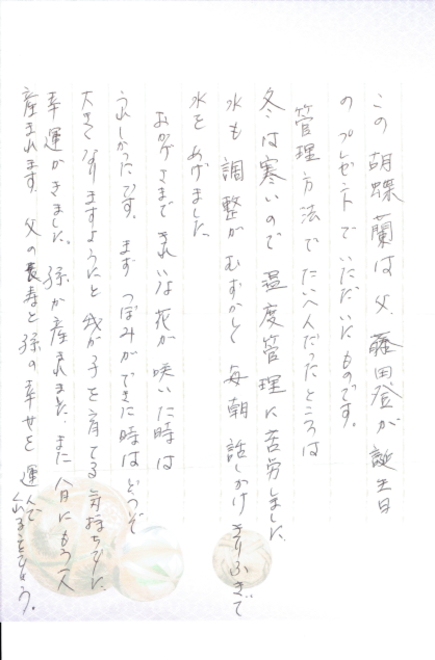 この胡蝶蘭は父、藤田登が誕生日
のプレゼントでいただいたものです。
管理方法でたいへんだったところは
冬は寒いので温度管理に苦労しました。
水も調整がむずかしく毎朝話しかけきりふきで
水をあげました。
おかげさまできれいな花が咲いた時は
うれしかったです。まずつぼみができた時はどうぞ
大きくなりますようにと我が子を育てる気持ちでした。
幸運がきました。孫が産まれました。また八月にもう一人
産まれます。父の長寿と孫の幸せを運んでくれることでしょう。